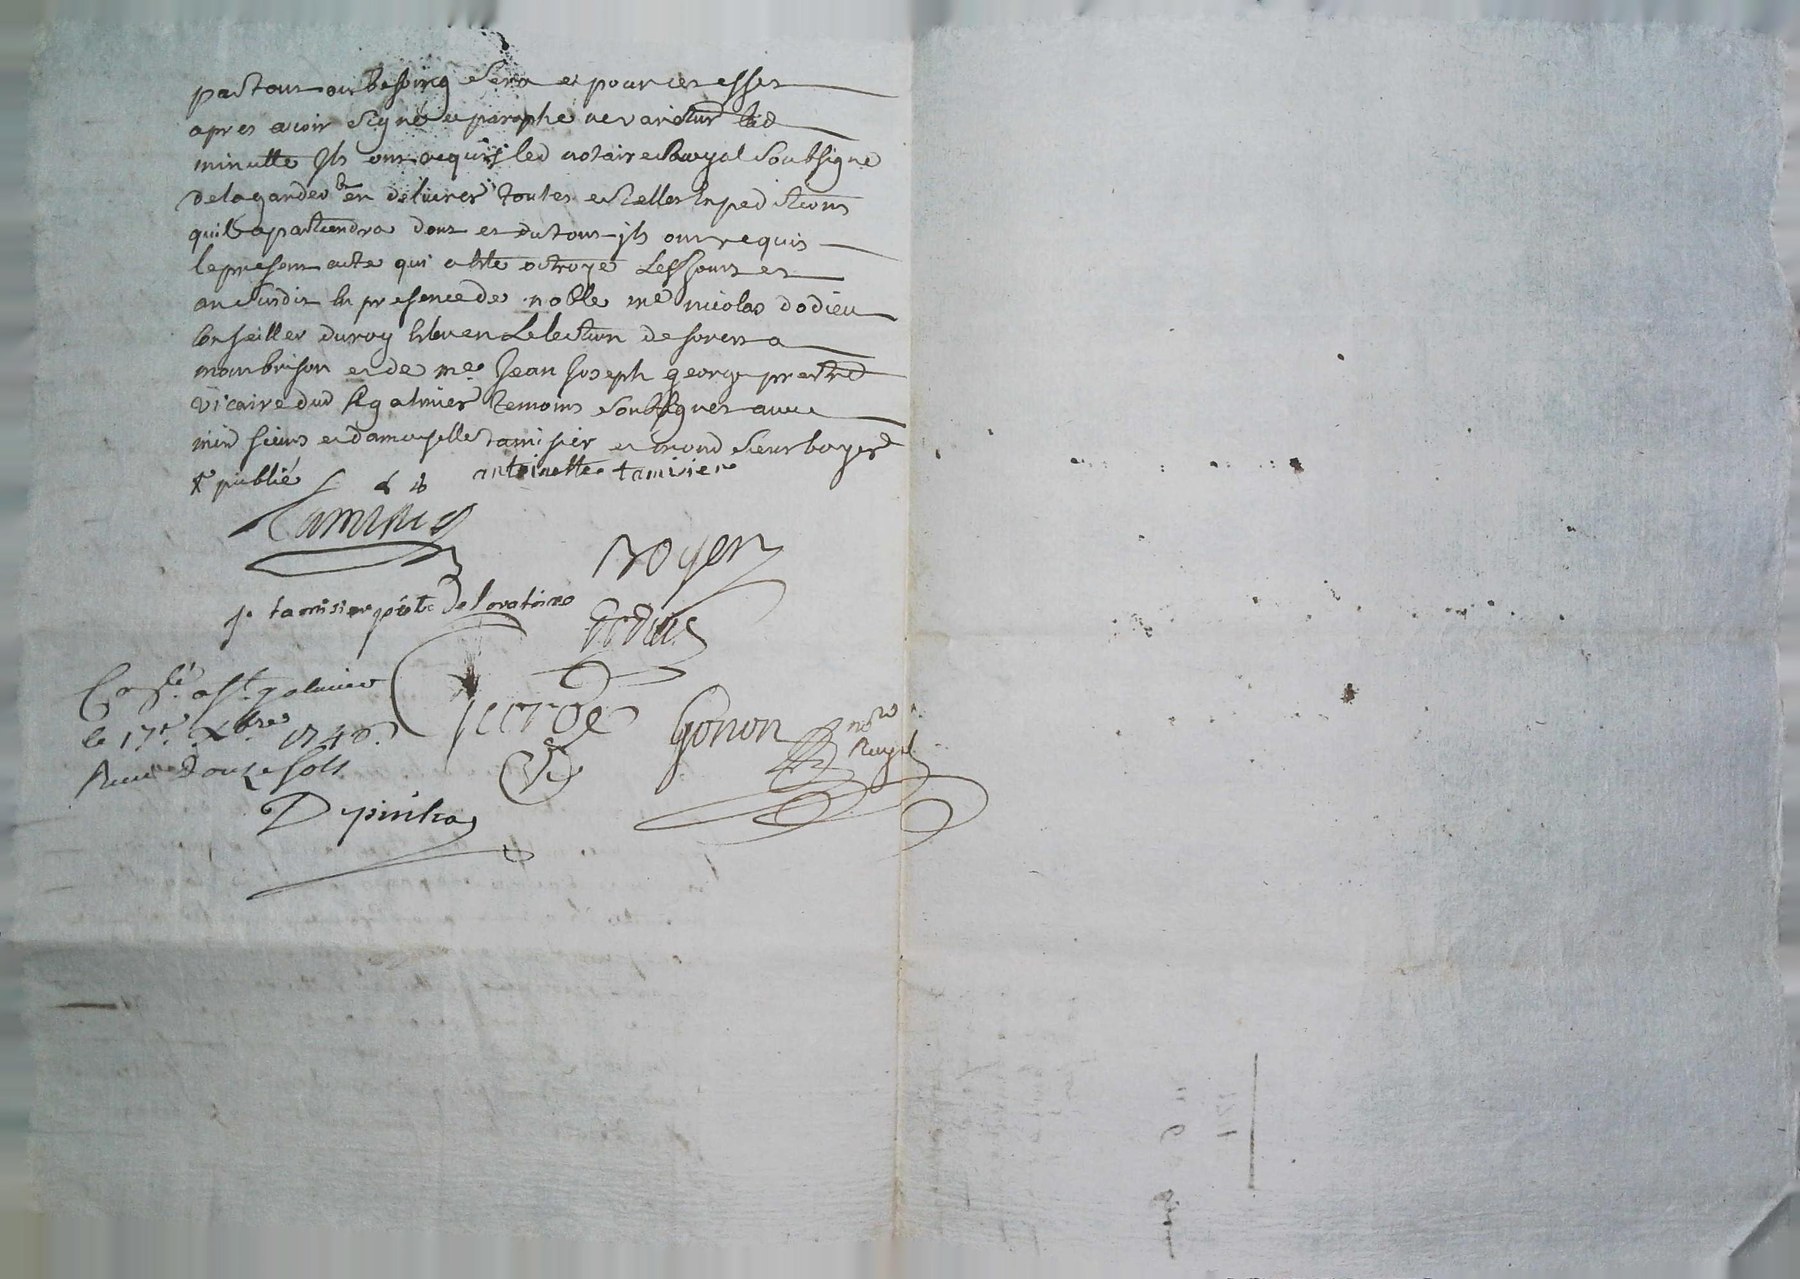 partout ou besoing sera et pour cet effet
apres avoir signé et paraphé ne varietur lad
minutte Ils ont requis led notaire Royal soubsigné
de la garder et en delivrer toutes et telles Expeditions
quil apartiendra dont et du tout ils ont requis
le present acte qui a Ete octroyé Les jours et
an susdit En presence de noble me nicolas dodieu
Conseiller du roy Eleu en Lelection de forest a
montbrison et de me Jean Joseph george prestre
vicaire dud St galmier temoins soubsignes avec
mesd sieurs et damoyselle tamisier et mond sieur boyer
& publié
antoinette tamisier
Tamisier
royer
j. tamisier prêt. de loratoire
Dodieu
George
Gonon nore
Royal
Conlé a St galmier
le 17e Xbre 1740
Receu Douze sols
Depinha